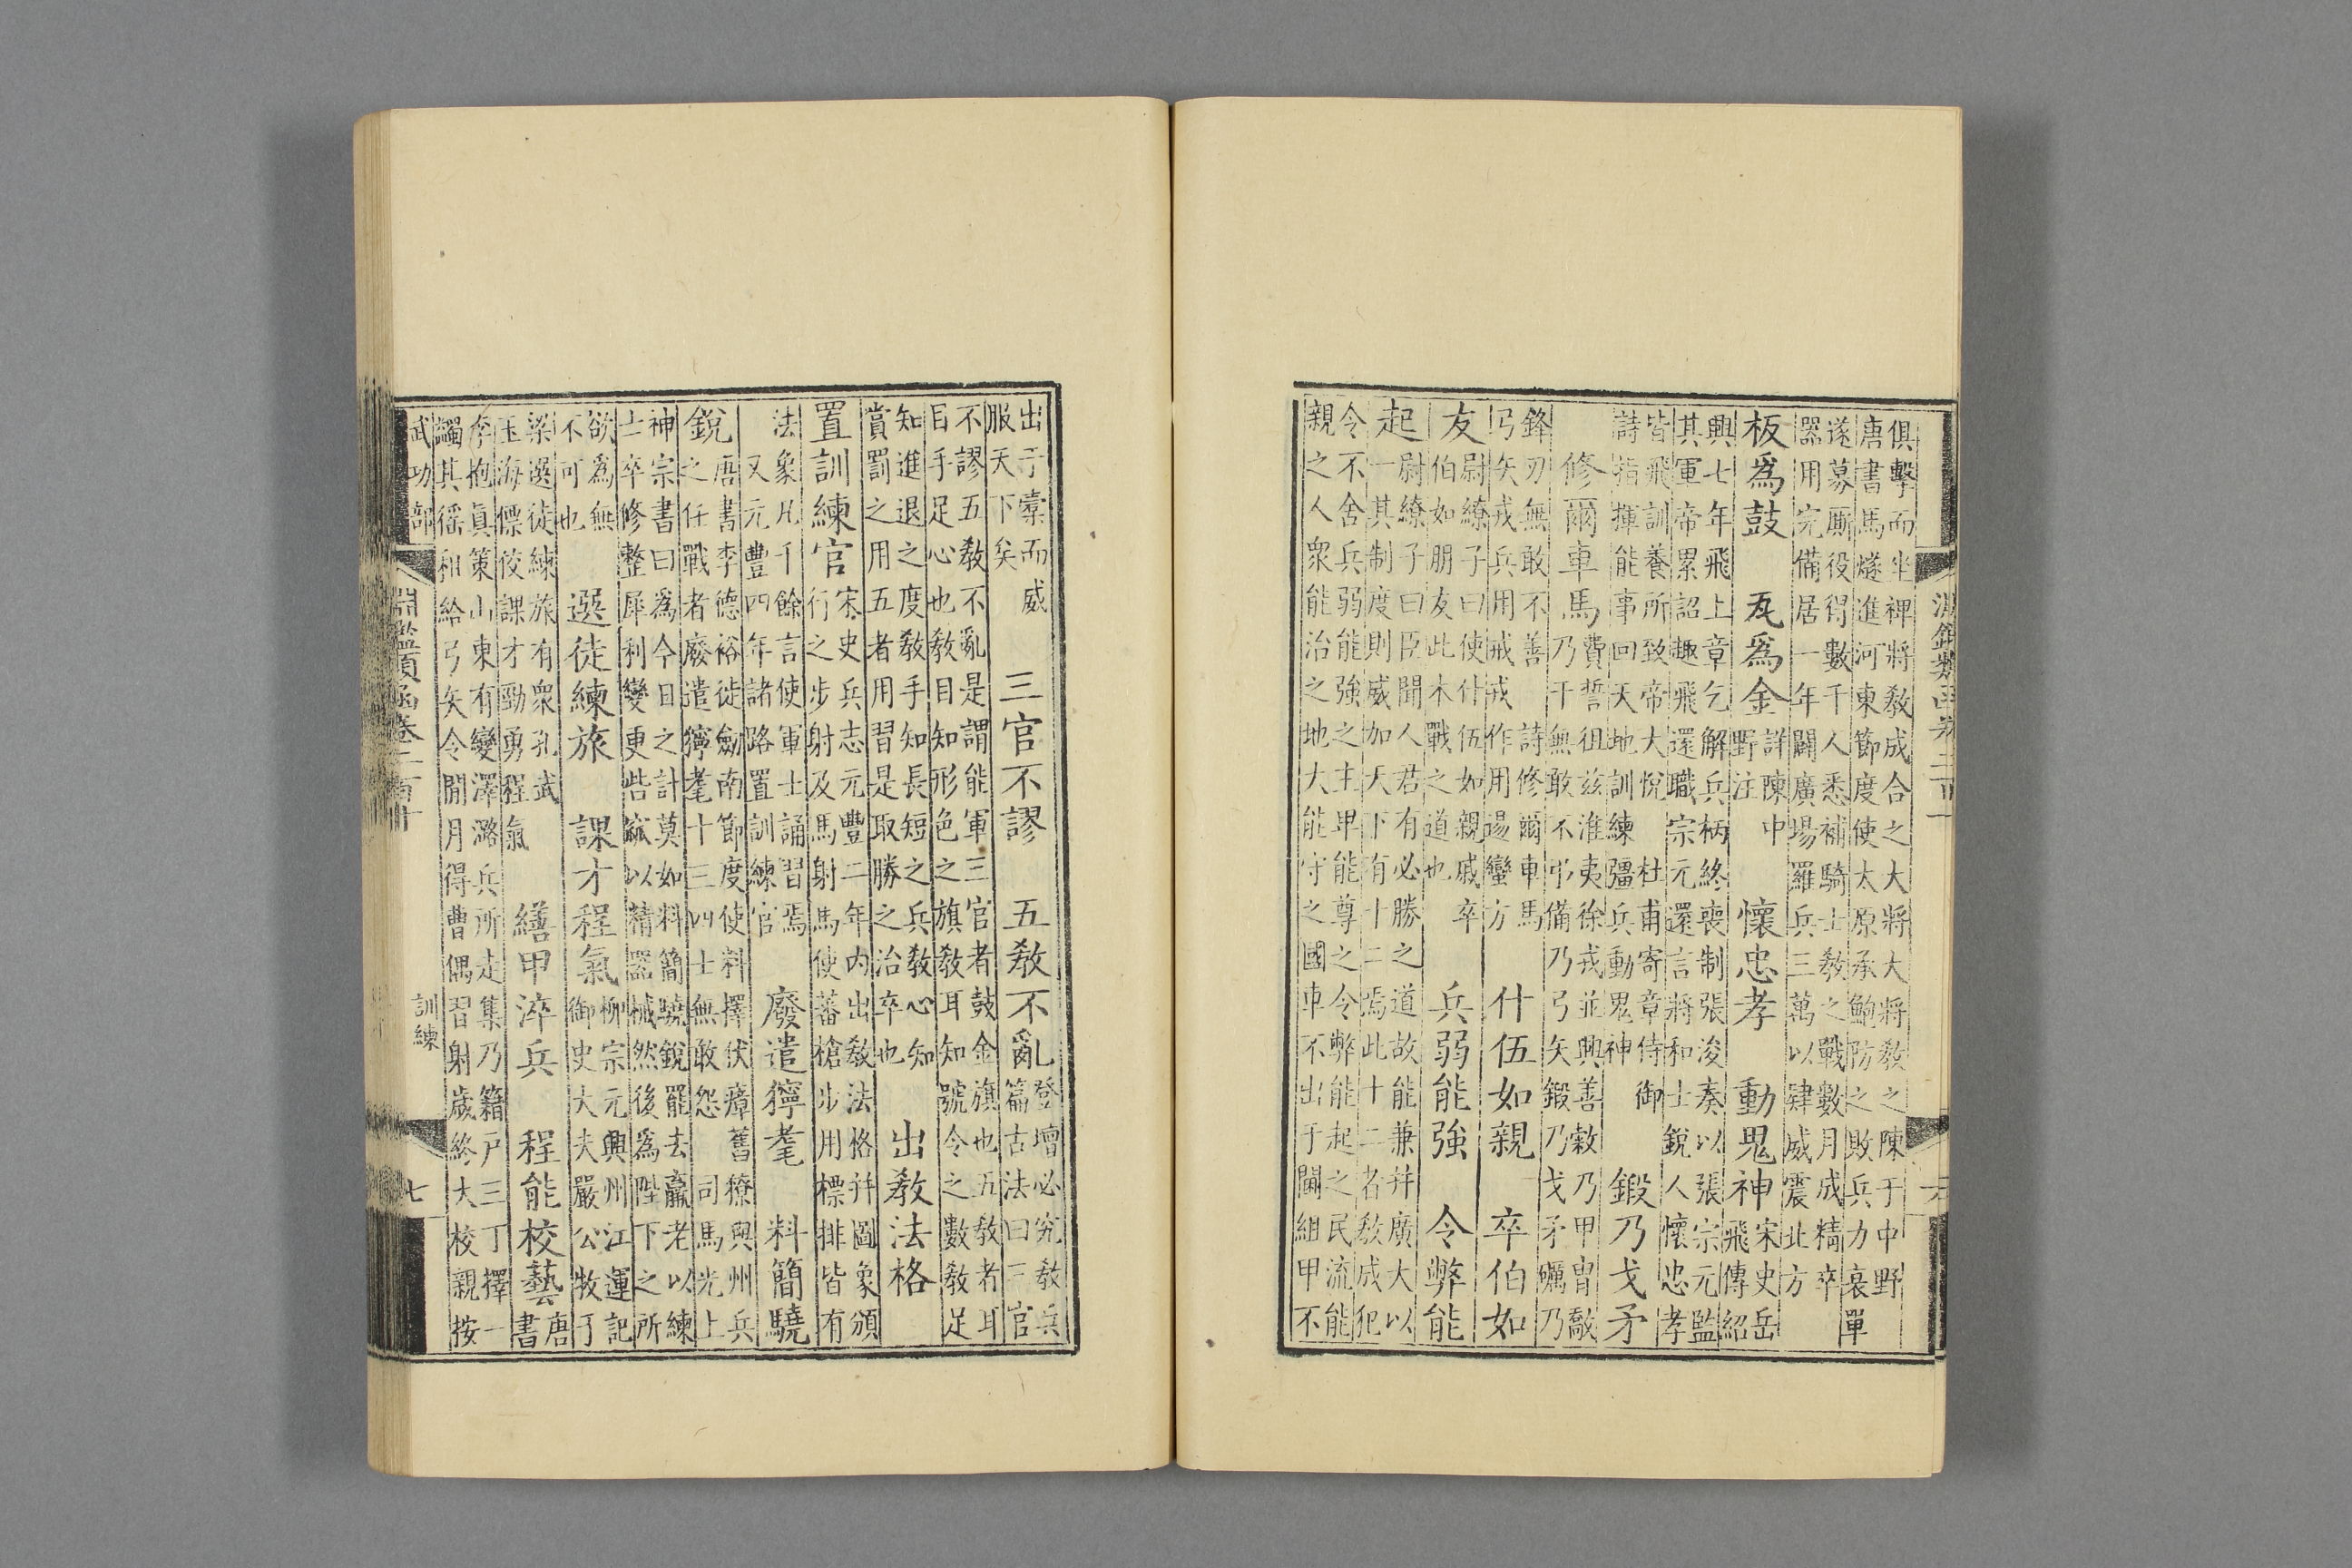 俱擊而坐裨將敎成合之大將大將敎之陳于中野
唐書馬燧進河東節度使太原承鮑防之敗兵力衰單
遂募厮役得數千人悉補騎士敎之戰數月成精卒
器用完備居一年闢廣場羅兵三萬以肄威震北方
板爲鼓 瓦爲金 詳陳中野注 懷忠孝 動鬼神 宋史岳飛傳紹
興七年飛上章乞解兵柄終喪制張浚奏以張宗元監
其軍帝累詔趣飛還職宗元還言將和士銳人懷忠孝
皆飛訓養所致帝大悅 杜甫寄章侍御
詩指揮能事回天地訓練彊兵動鬼神 鍛乃戈矛
修爾車馬 費誓徂茲淮夷徐戎並興善敹乃甲冑敿
乃干無敢不弔備乃弓矢鍛乃戈矛礪乃
鋒刃無敢不善 詩修爾車馬
弓矢戎兵用戒戎作用逷蠻方 什伍如親 卒伯如
友 尉繚子曰使什伍如親戚卒
伯如朋友此本戰之道也 兵弱能強 令弊能
起 尉繚子曰臣聞人君有必勝之道故能兼并廣大以
一其制度則威加天下有十二焉此十二者敎成犯
令不舍兵弱能強之主卑能尊之令弊能起之民流能
親之人衆能治之地大能守之國車不出于閫組甲不
出于橐而威
服天下矣 三官不謬 五敎不亂 登壇必究敎兵篇古法曰三官
不謬五敎不亂是謂能軍三官者鼓金旗也五敎者耳
目手足心也敎目知形色之旗敎耳知號令之數敎足
知進退之度敎手知長短之兵敎心知
賞罰之用五者用習是取勝之治卒也 出敎法格
置訓練官 宋史兵志元豐二年内出敎法格并圖象頒
行之步射及馬射馬使蕃槍步用標排皆有
法象凡千餘言使軍士誦習焉
又元豐四年諸路置訓練官 廢遣獰耄 料簡驍
銳 唐書李德裕徙劒南節度使料擇伏瘴舊獠與州兵
之任戰者廢遣獰耄十三四士無敢怨 司馬光上
神宗書曰爲今日之計莫如料簡驍銳罷去羸老以練
士卒修整犀利變更呰窳以精器械然後爲陛下之所
欲爲無
不可也 選徒練旅 課才程氣 柳宗元興州江運記御史大夫嚴公牧于
梁選徒練旅有衆孔武
玉海僄狡課才勁勇程氣 繕甲淬兵 程能校藝 唐書
李抱眞策山東有變澤潞兵所走集乃籍戶三丁擇一
蠲其徭租給弓矢令閒月得曹偶習射歲終大校親按
武功部 淵鑑類函卷二百十 訓練 七